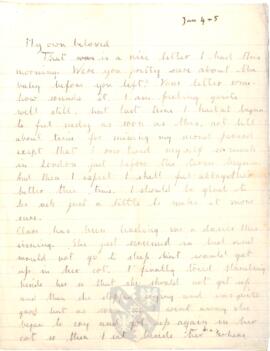 Jan 4-5
My own beloved
That was is a nice letter I had this
morning. Were you pretty sure about the
baby before you left? Your letter some-
how sounds it. I am feeling quite
well still, but last time I hadn't begun
to feel seedy as soon as this, not till
about time for missing my second period
except that I one tired myself so much
in London just before the term began.
but then I expect I shall feel altogether
better this time. I should be glad to
be sick just a little to make it more
sure.
Clare has been leading me a dance this
evening. She just screamed in bed and
would not go to sleep and would get
up in her cot. I finally tried standing
beside her so that she should not get up
and then she stopped crying and was quite
good but as soon as I went away she
began to cry and get up again in her
cot so then I sat beside her